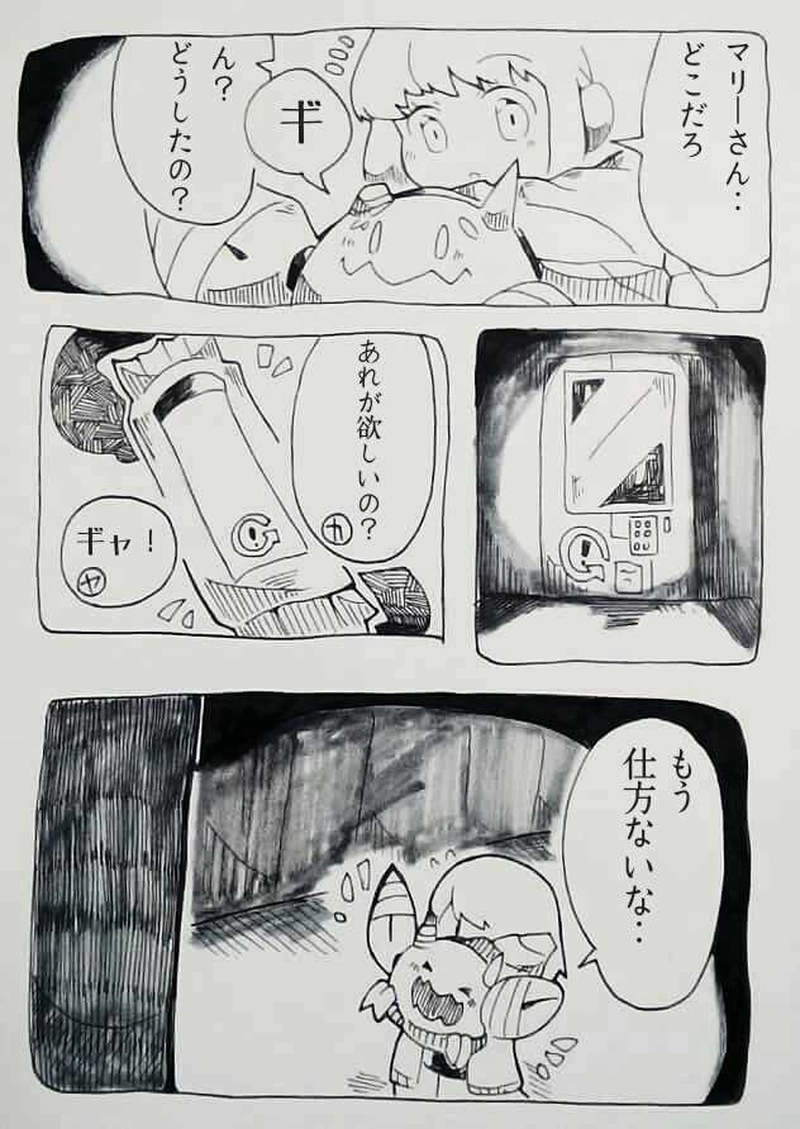 マリーさん‥
どこだろ
ギ
ん?
どうしたの?
あれが欲しいの?
カ
ギャ!
ヤ
もう
仕方ないな‥